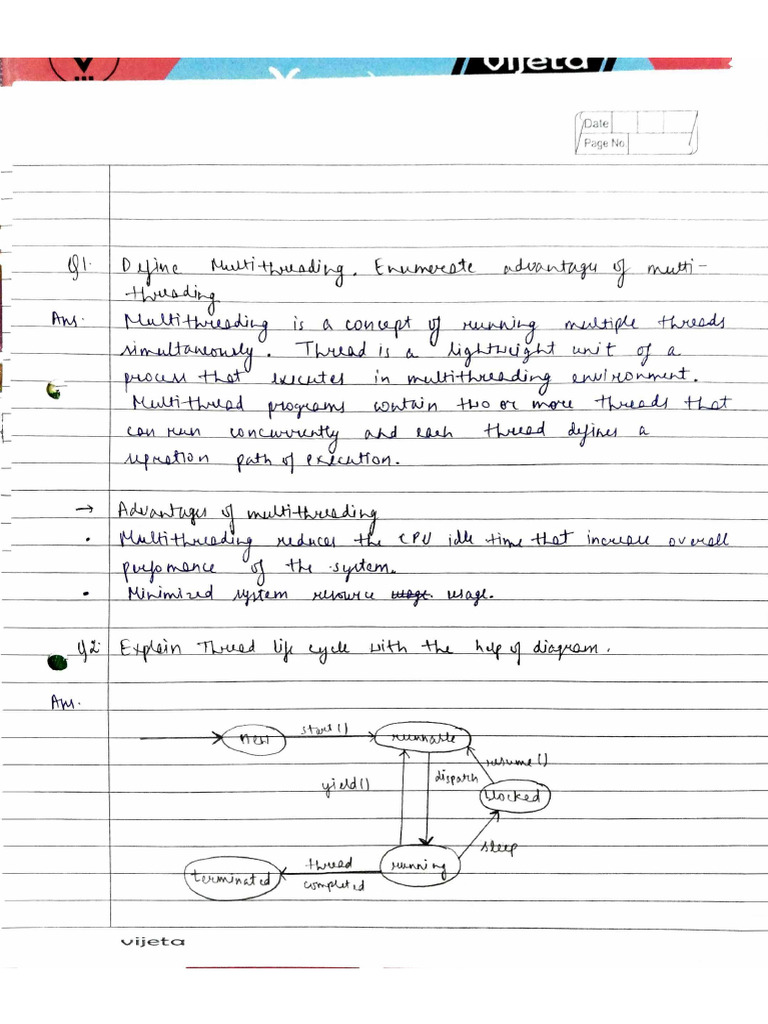 vijeta
Date
Page No.
Q1. Define Multithreading. Enumerate advantages of multi-
threading
Ans. Multithreading is a concept of running multiple threads
simultaneously. Thread is a lightweight unit of a
process that executes in multithreading environment.
Multithread programs contain two or more threads that
can run concurrently and each thread defines a
sepration path of execution.
→ Advantages of multithreading
• Multithreading reduces the CPU idle time that increase overall
perfomance of the system.
• Minimized system resource usage.
Q2. Explain Thread life cycle with the help of diagram.
Ans.
new start() runnable
resume()
yield() dispatch
blocked
sleep
terminated thread completed running
vijeta